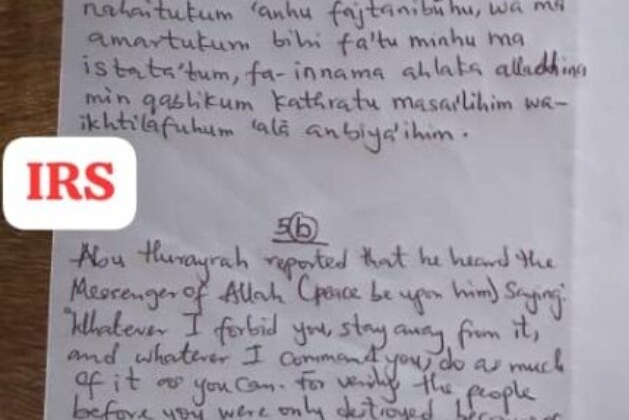 nahaitukum 'anhu fajtanibuhu, wa ma
amartukum bihi fa'tu minhu ma
istata'tum, fa-innama ahlaka alladhina
min qablikum kathratu masa'ilihim wa-
ikhtilafuhum 'alā anbiya'ihim.
IRS
5(b)
Abu Hurayrah reported that he heard the
Messenger of Allah (peace be upon him) saying:
"Whatever I forbid you, stay away from it,
and whatever I command you, do as much
of it as you can. For verily the people
before you were only destroyed because